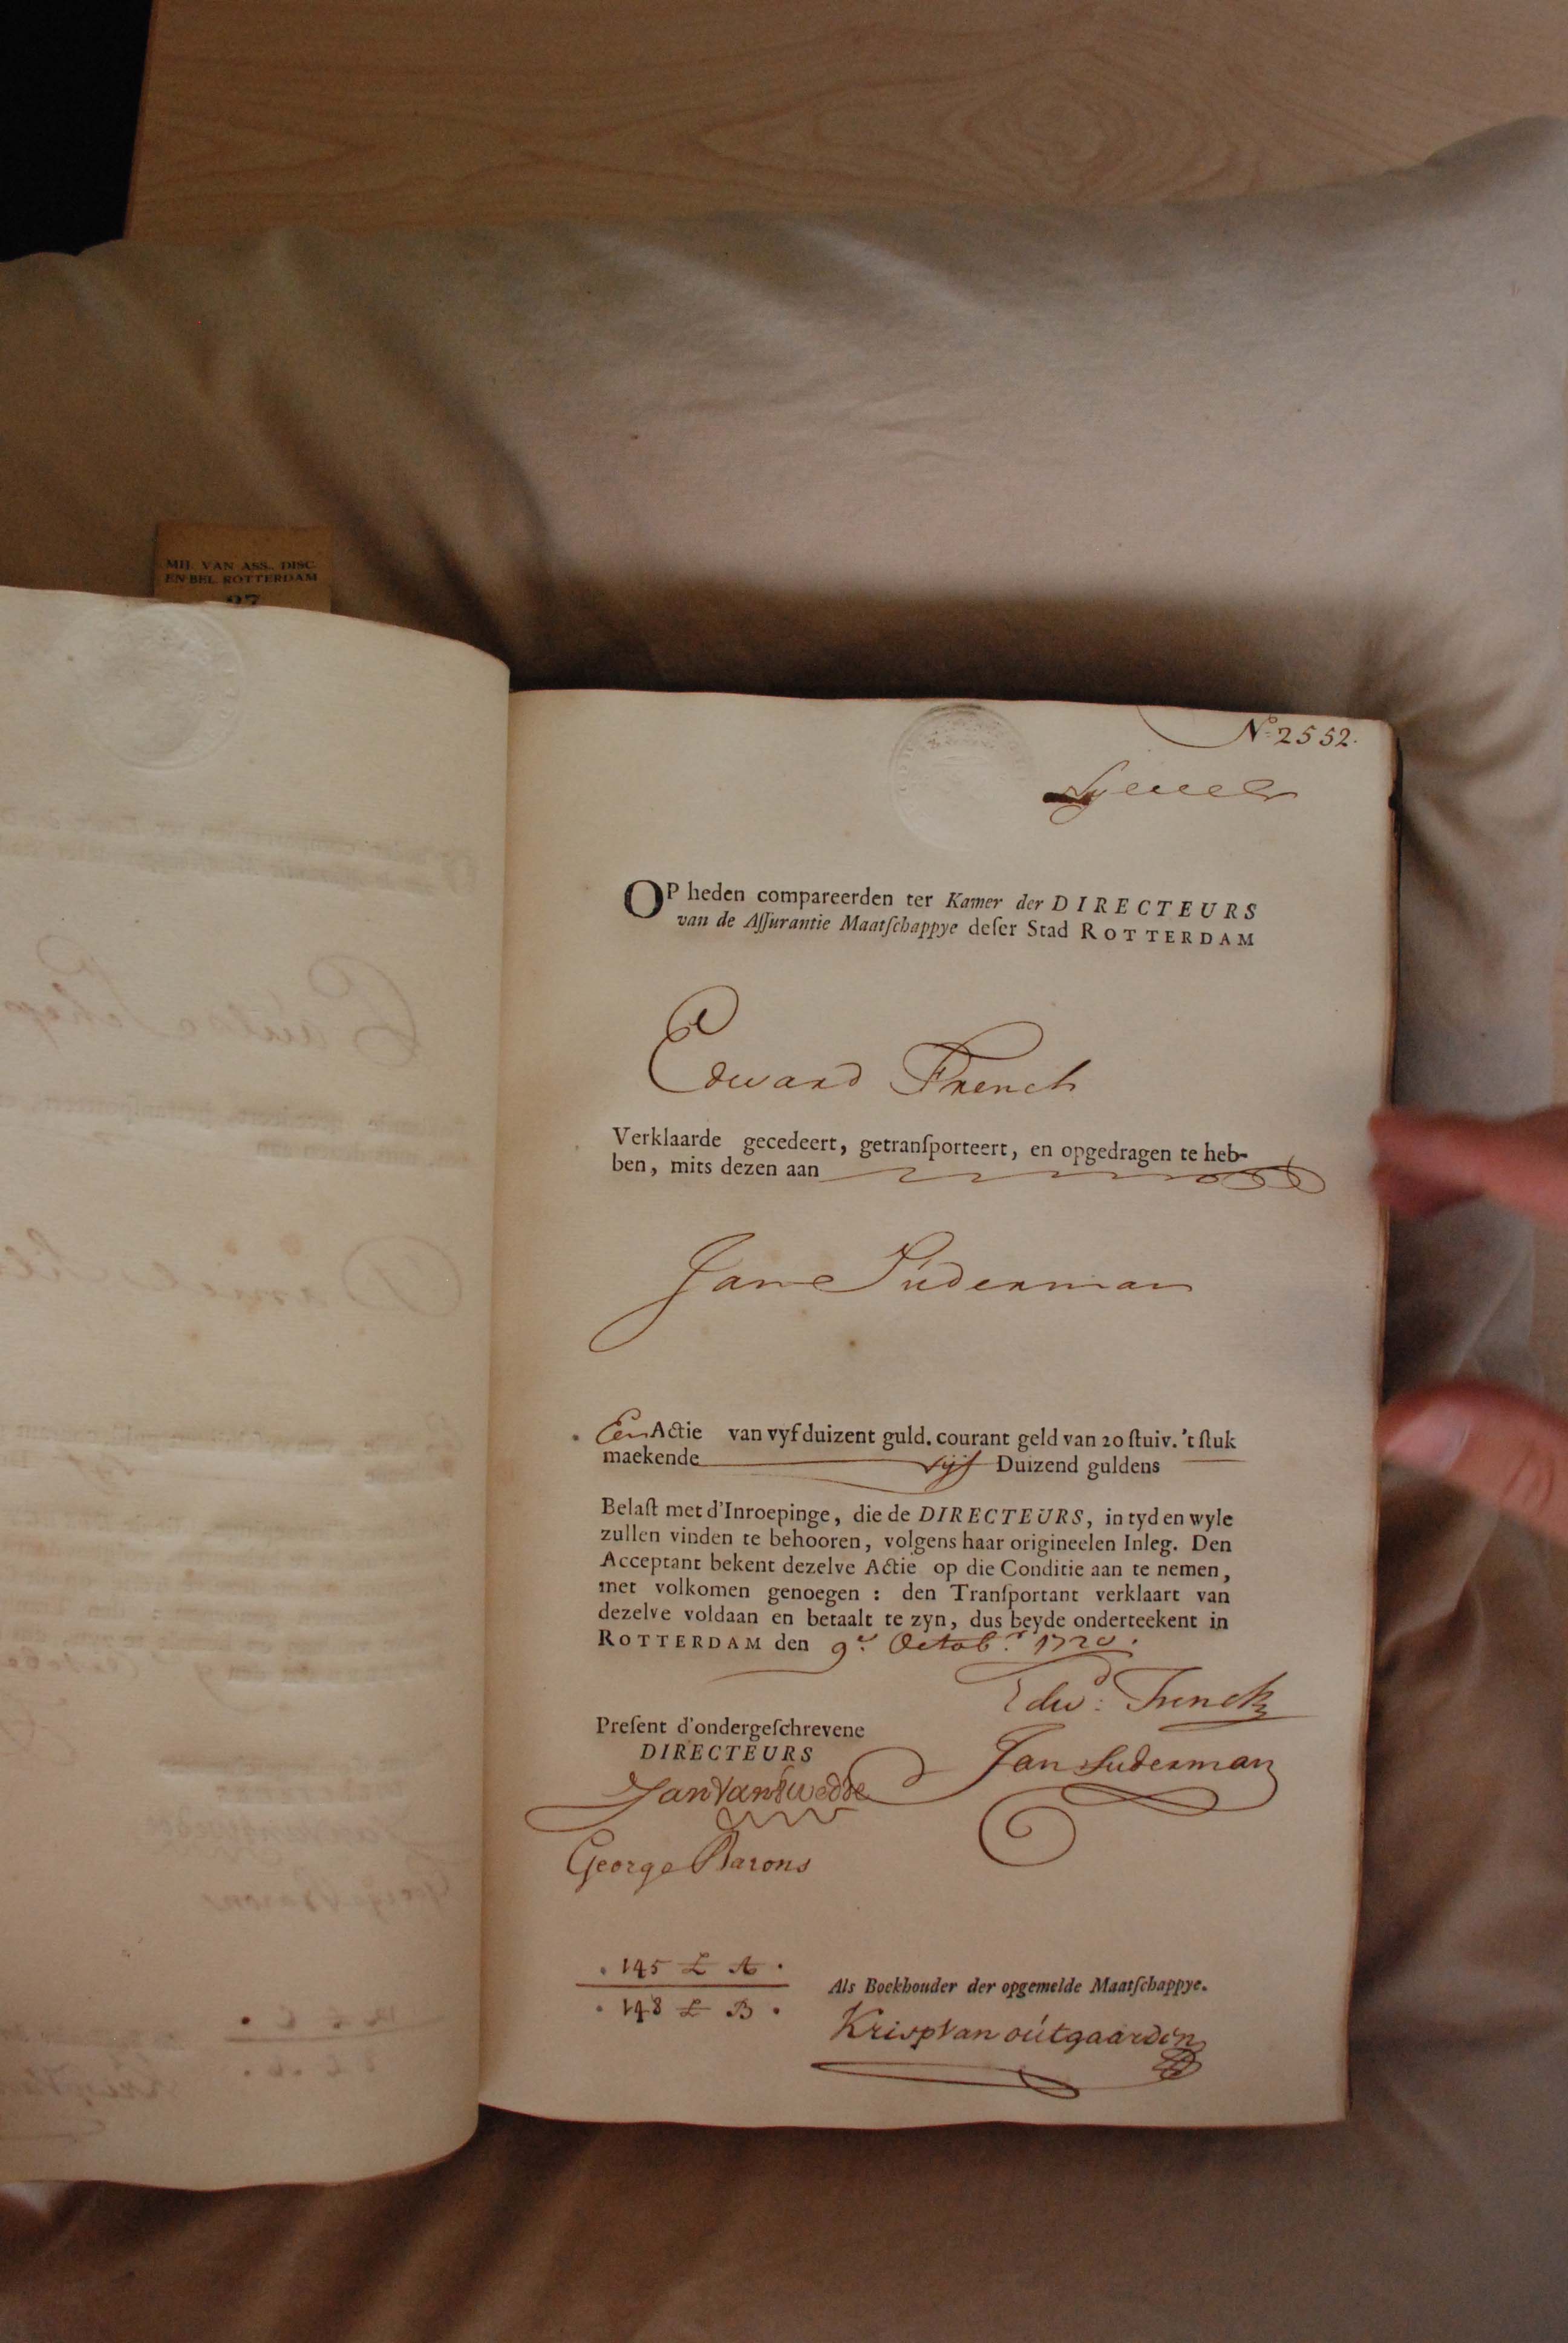 MIJ. VAN ASS., DISC.
EN BEL. ROTTERDAM
27
No 2552.
OP heden compareerden ter Kamer der DIRECTEURS
van de Aſſurantie Maatſchappye deſer Stad ROTTERDAM
Edward French
Verklaarde gecedeert, getranſporteert, en opgedragen te heb-
ben, mits dezen aan
Jan Suderman
Een Actie van vyf duizent guld. courant geld van 20 ſtuiv. 't ſtuk
maekende vyf Duizend guldens
Belaſt met d'Inroepinge, die de DIRECTEURS, in tyd en wyle
zullen vinden te behooren, volgens haar origineelen Inleg. Den
Acceptant bekent dezelve Actie op die Conditie aan te nemen,
met volkomen genoegen : den Tranſportant verklaart van
dezelve voldaan en betaalt te zyn, dus beyde onderteekent in
ROTTERDAM den 9e Octobr 1720.
Edwd: French
Preſent d'ondergeſchrevene
DIRECTEURS
Jan Suderman
Jan Van Twedde
George Barons
145 L A
148 L B
Als Boekhouder der opgemelde Maatſchappye.
Krisp Van oútgaarden